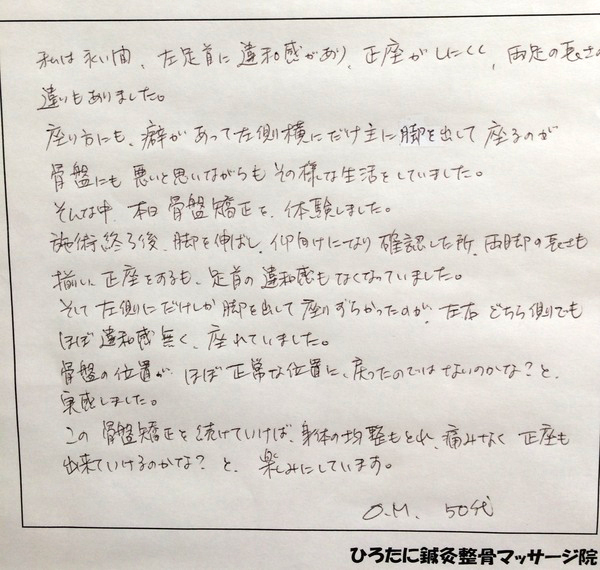 私は永い間、左足首に違和感があり、正座がしにくく、両足の長さの
違いもありました。
座り方にも、癖があって左側横にだけ主に脚を出して座るのが
骨盤にも悪いと思いながらもその様な生活をしていました。
そんな中、本日骨盤矯正を、体験しました。
施術終了後、脚を伸ばし、仰向けになり確認した所、両脚の長さも
揃い、正座をするも、足首の違和感もなくなっていました。
そして左側にだけしか脚を出して座りずらかったのが、左右どちら側でも
ほぼ違和感無く、座れていました。
骨盤の位置が、ほぼ正常な位置に、戻ったのではないのかな?と、
実感しました。
この骨盤矯正を続けていけば、身体の均整もとれ、痛みなく正座も
出来ていけるのかな?と、楽しみにしています。
O.M. 50代
ひろたに鍼灸整骨マッサージ院